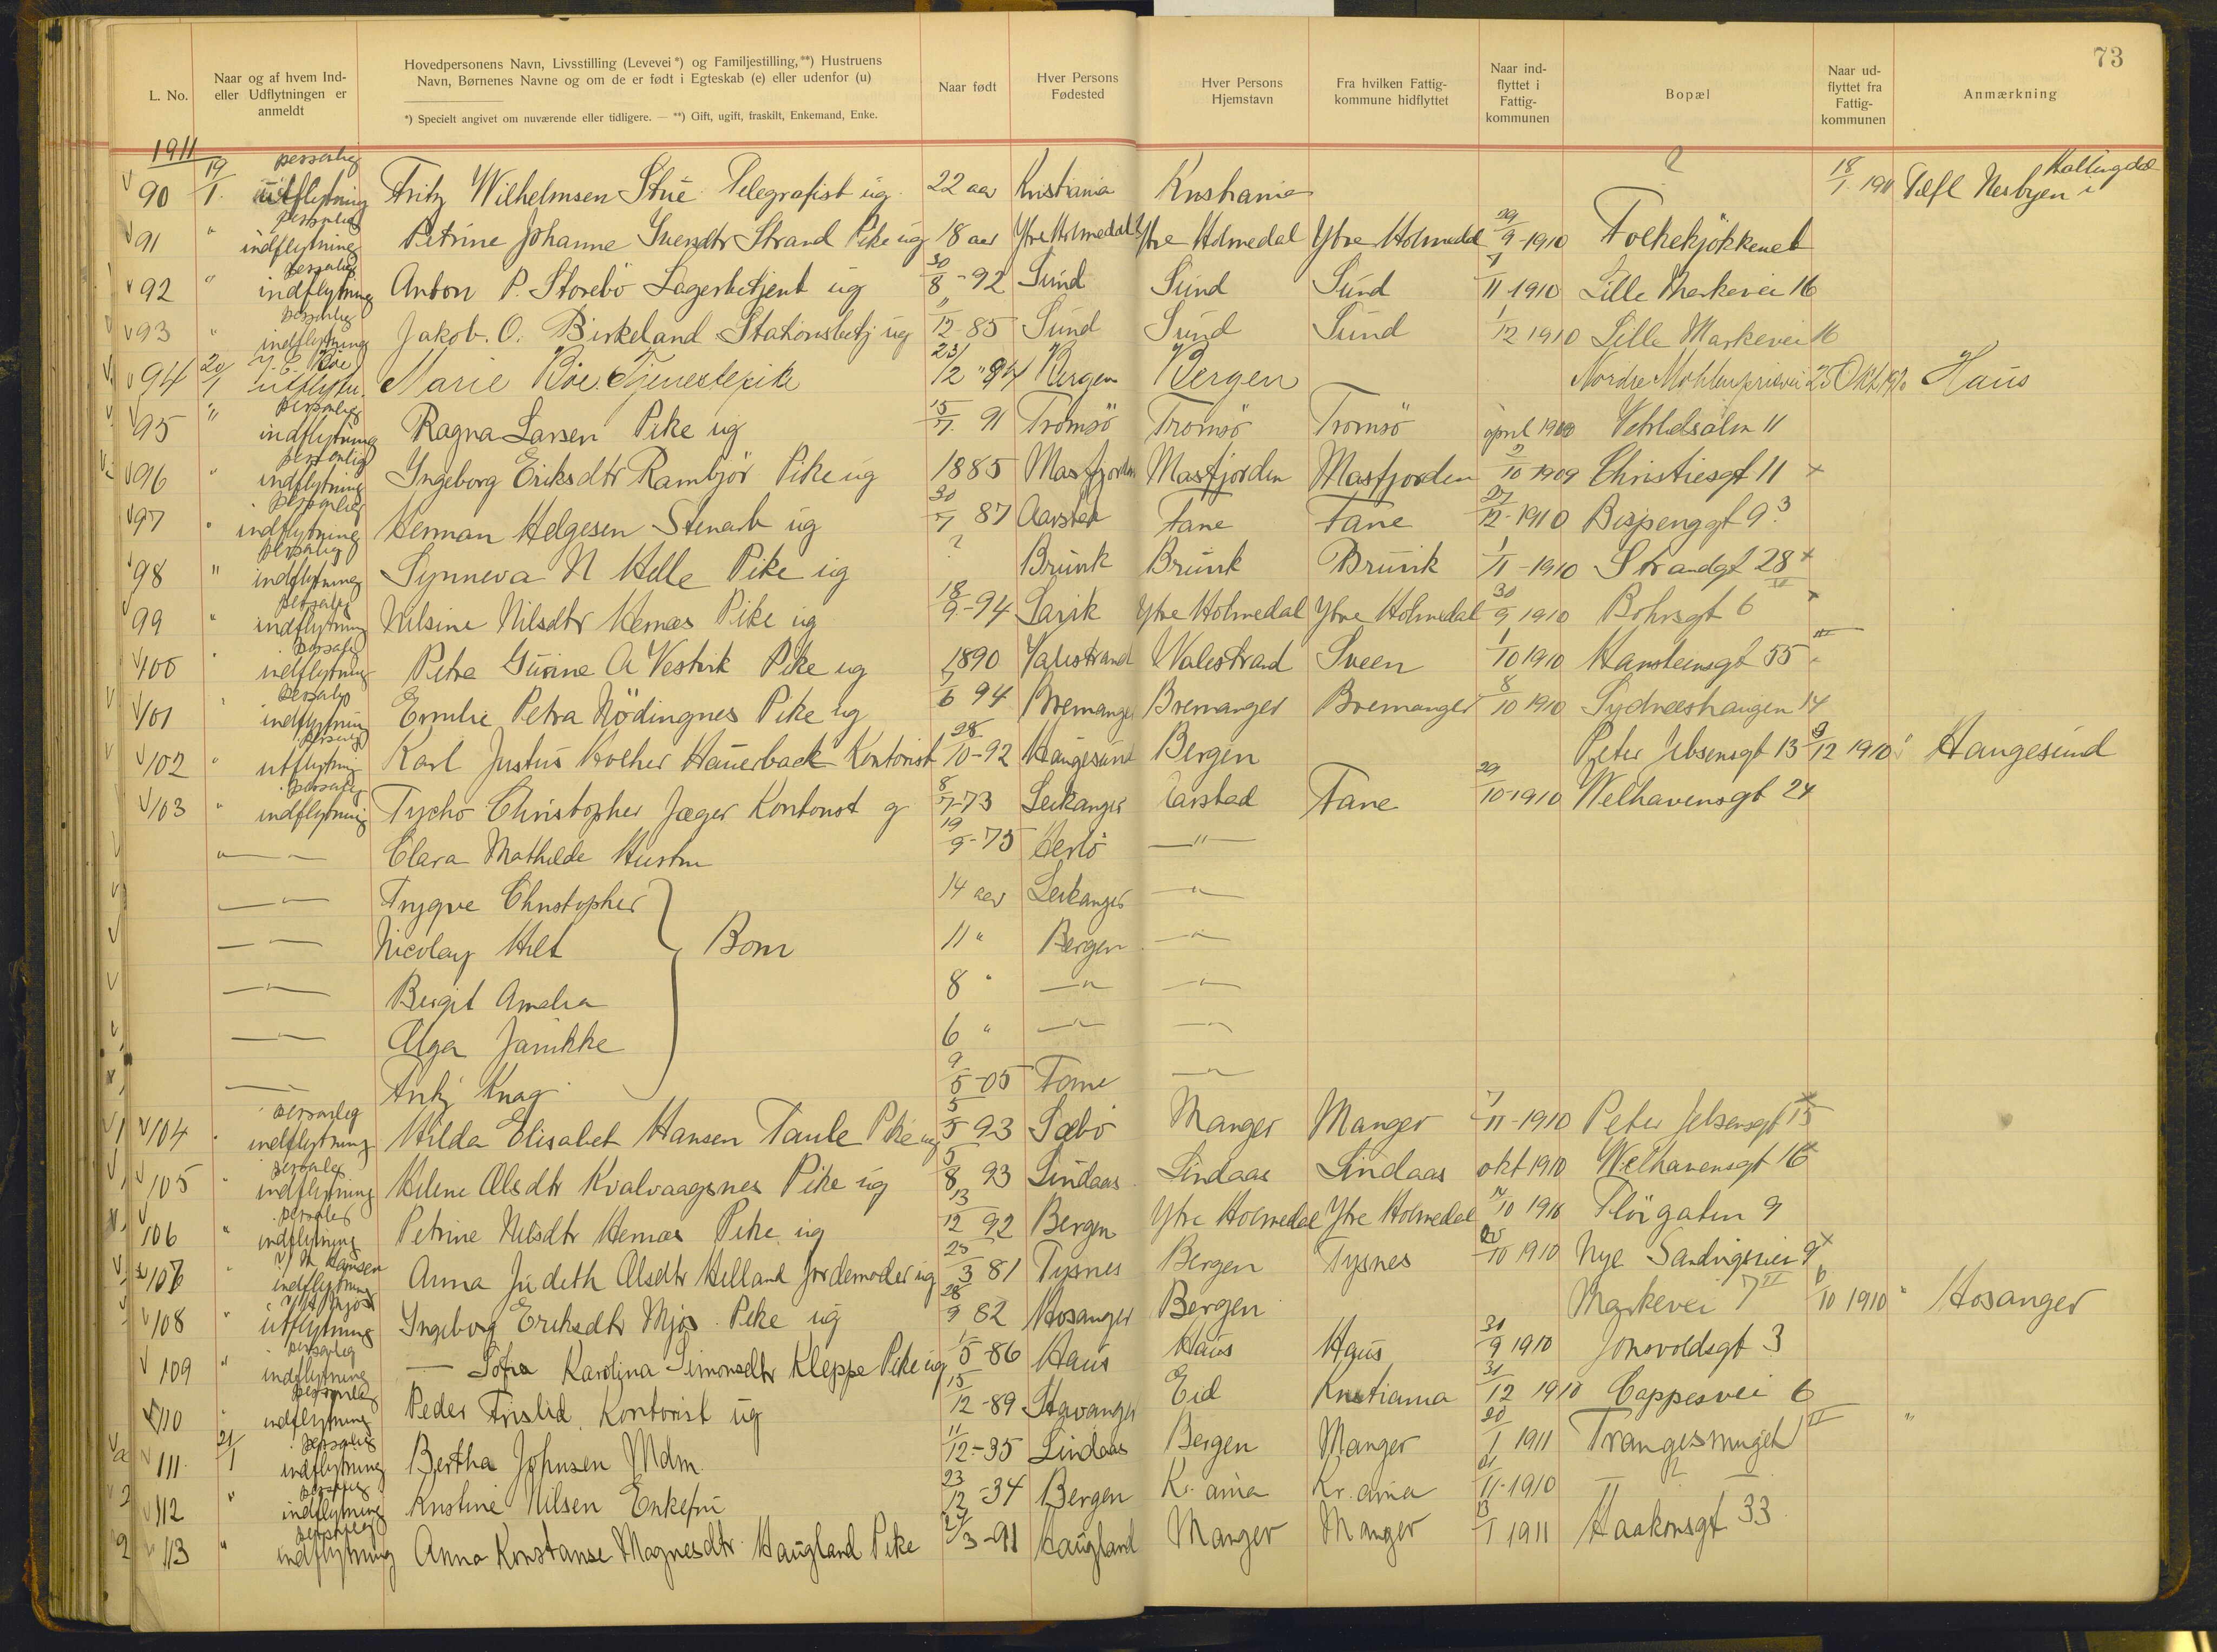 73
L. No.
Naar og af hvem Ind- eller Udflytningen er anmeldt
Hovedpersonens Navn, Livsstilling (Levevei*) og Familjestilling,**) Hustruens Navn, Børnenes Navne og om de er født i Egteskab (e) eller udenfor (u)
*) Specielt angivet om nuværende eller tidligere. — **) Gift, ugift, fraskilt, Enkemand, Enke.
Naar født
Hver Persons Fødested
Hver Persons Hjemstavn
Fra hvilken Fattig- kommune hidflyttet
Naar ind- flyttet i Fattig- kommunen
Bopæl
Naar ud- flyttet fra Fattig- kommunen
Anmærkning
1911
90 19/1 personlig utflytning Fritz Wilhelmsen Stue Telegrafist ug. 22 aar Kristiania Kristiania ? 18/1 1911 Nesbyen i Hallingdal
91 " personlig indflytning Petrine Johanne Svendsdtr Strand Pike ug 18 aar Ytre Holmedal Ytre Holmedal Ytre Holmedal 29/9-1910 Folkekjøkkenet
92 " personlig indflytning Anton P. Storebö Lagerbetjent ug 30/8-92 Sund Sund Sund 1/11 1910 Lille Markevei 16
93 " personlig indflytning Jakob. O. Birkeland Stationsbetj ug 12-85 Sund Sund Sund 1/12 1910 Lille Markevei 16
94 20/1 Böe utflytn. Marie Böe. Tjenestepike 23/12 "94 Bergen Bergen Nordre Möhlenprisvei 25 Okt. 1910 Haus
95 " personlig indflytning Ragna Larsen Pike ug 15/7. 91 Tromsö Tromsö Tromsö april Vetrlidsalm 11
96 " personlig indflytning Ingeborg Eriksdtr Rambjör Pike ug 1885 Masfjorden Masfjorden Masfjorden 2/10-1909 Christiesgt 11 x
97 " personlig indflytning Herman Helgesen Stenarb ug 30/7 87 Aarstad Fane Fane 27/12-1910 Bispenggt 9
98 " personlig indflytning Synneva N Helle Pike ug ? Bruvik Bruvik Bruvik 1/11-1910 Strandgt 28 x
99 " personlig indflytning Nilsine Nilsdtr Hernæs Pike ug 18/9-94 Ytre Holmedal Ytre Holmedal 30/9 1910 Bohrsgt 6 x
100 " personlig indflytning Petra Gurine A Vestvik Pike ug 1890 Valestrand Valestrand Sveen 1/10 1910 Hansteensgt 55 III
101 " personlig indflytning Emilie Petra Nödingnes Pike ug 7/6 94 Bremanger Bremanger Bremanger 8/10 1910 Sydneshaugen 14
102 " personlig utflytning Karl Justus Hauerback Kontorist 28/10-92 Haugesund Bergen Peter Jebsensgt 13 3/12 1910 Haugesund
103 " personlig indflytning Tycho Christopher Jæger Kontorist g 8/7-73 Leikanger Aarstad Fane 29/10-1910 Welhavensgt 24
— " — Clara Mathilde Hustru 19/9-75 Herlö — " —
— " — Trygve Christopher 14 aar Leikanger — " —
— " — Nicolay Hilt Born 11 " Bergen — " —
— " — Birgit Amalia 8 " — " — — " —
— " — Olga Jannikke 6 " — " — — " —
— " — Fritz Knag 9/5-05 Fane — " —
104 " personlig indflytning Hilda Elisabet Hansen Taule Pike ug 5/5 93 Sæbö Manger Manger 1/11-1910 Peter Jebsensgt 15
105 " personlig indflytning Helene Olsdtr Kvalvaagsnes Pike ug 5/8 93 Lindaas Lindaas Lindaas okt 1910 Welhavensgt 16
106 " personlig indflytning Petrine Nilsdtr Hernæs Pike ug 13/12 92 Bergen Ytre Holmedal Ytre Holmedal 14/10 1910 Flöigaten 9
107 " v/ M Hansen indflytning Anna Judith Olsdtr Helland Jordemoder ug 25/3 81 Tysnes Bergen Tysnes 20/10 1910 Nye Sandviksvei 9 x
108 " Mjös utflytning Ingeborg Eriksdtr Mjös Pike ug 28/9 82 Hosanger Bergen Markevei 7 II 6/10 1910 Hosanger
109 " personlig indflytning — Sofia Karolina Simonsdtr Kleppe Pike ug 1/5-86 Haus Haus Haus 30/9 1910 Jonsvoldsgt 3
110 " personlig indflytning Peder Frislid. Kontorist ug 15/12-89 Stavanger Eid Kristiania 31/12 1910 Cappesvei 6
111. 21/1 personlig indflytning Bertha Johnsen Mdm. 11/12-35 Lindaas Bergen Manger 20/1 1911 Trangesmuget II
112 " personlig indflytning Kristine Nilsen Enkefru 23/12-34 Bergen Kr. ania Kr. ania 11-1910 — ? —
113 " personlig indflytning Anna Konstanse Magnesdtr. Haugland Pike 27/3-91 Haugland Manger Manger 13/1 1911 Haakonsgt 33